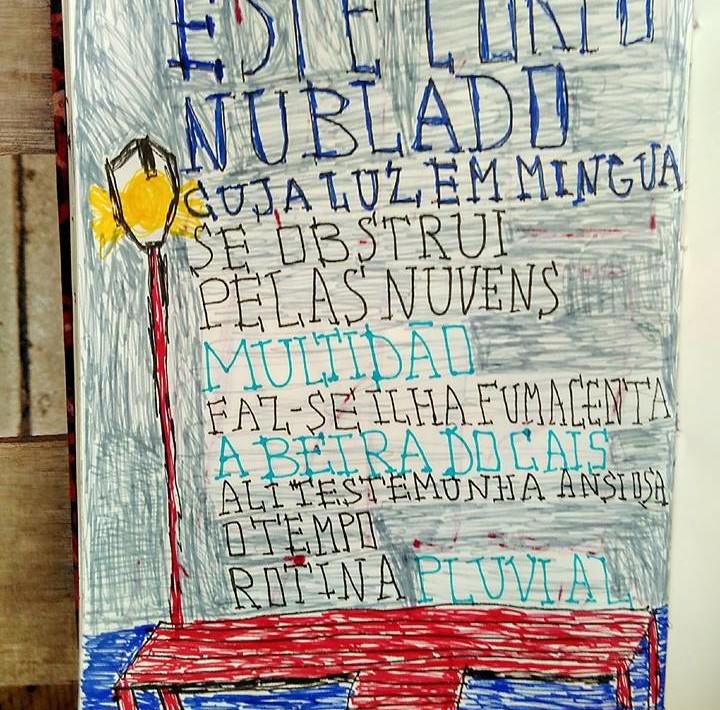 ESTE CORPO
NUBLADO
CUJA LUZ EM MINGUA
SE OBSTRUI
PELAS NUVENS
MULTIDÃO
FAZ-SE ILHA FUMACENTA
A BEIRA DO CAIS
ALI TESTEMUNHA ANSIOSA
O TEMPO
ROTINA PLUVIAL